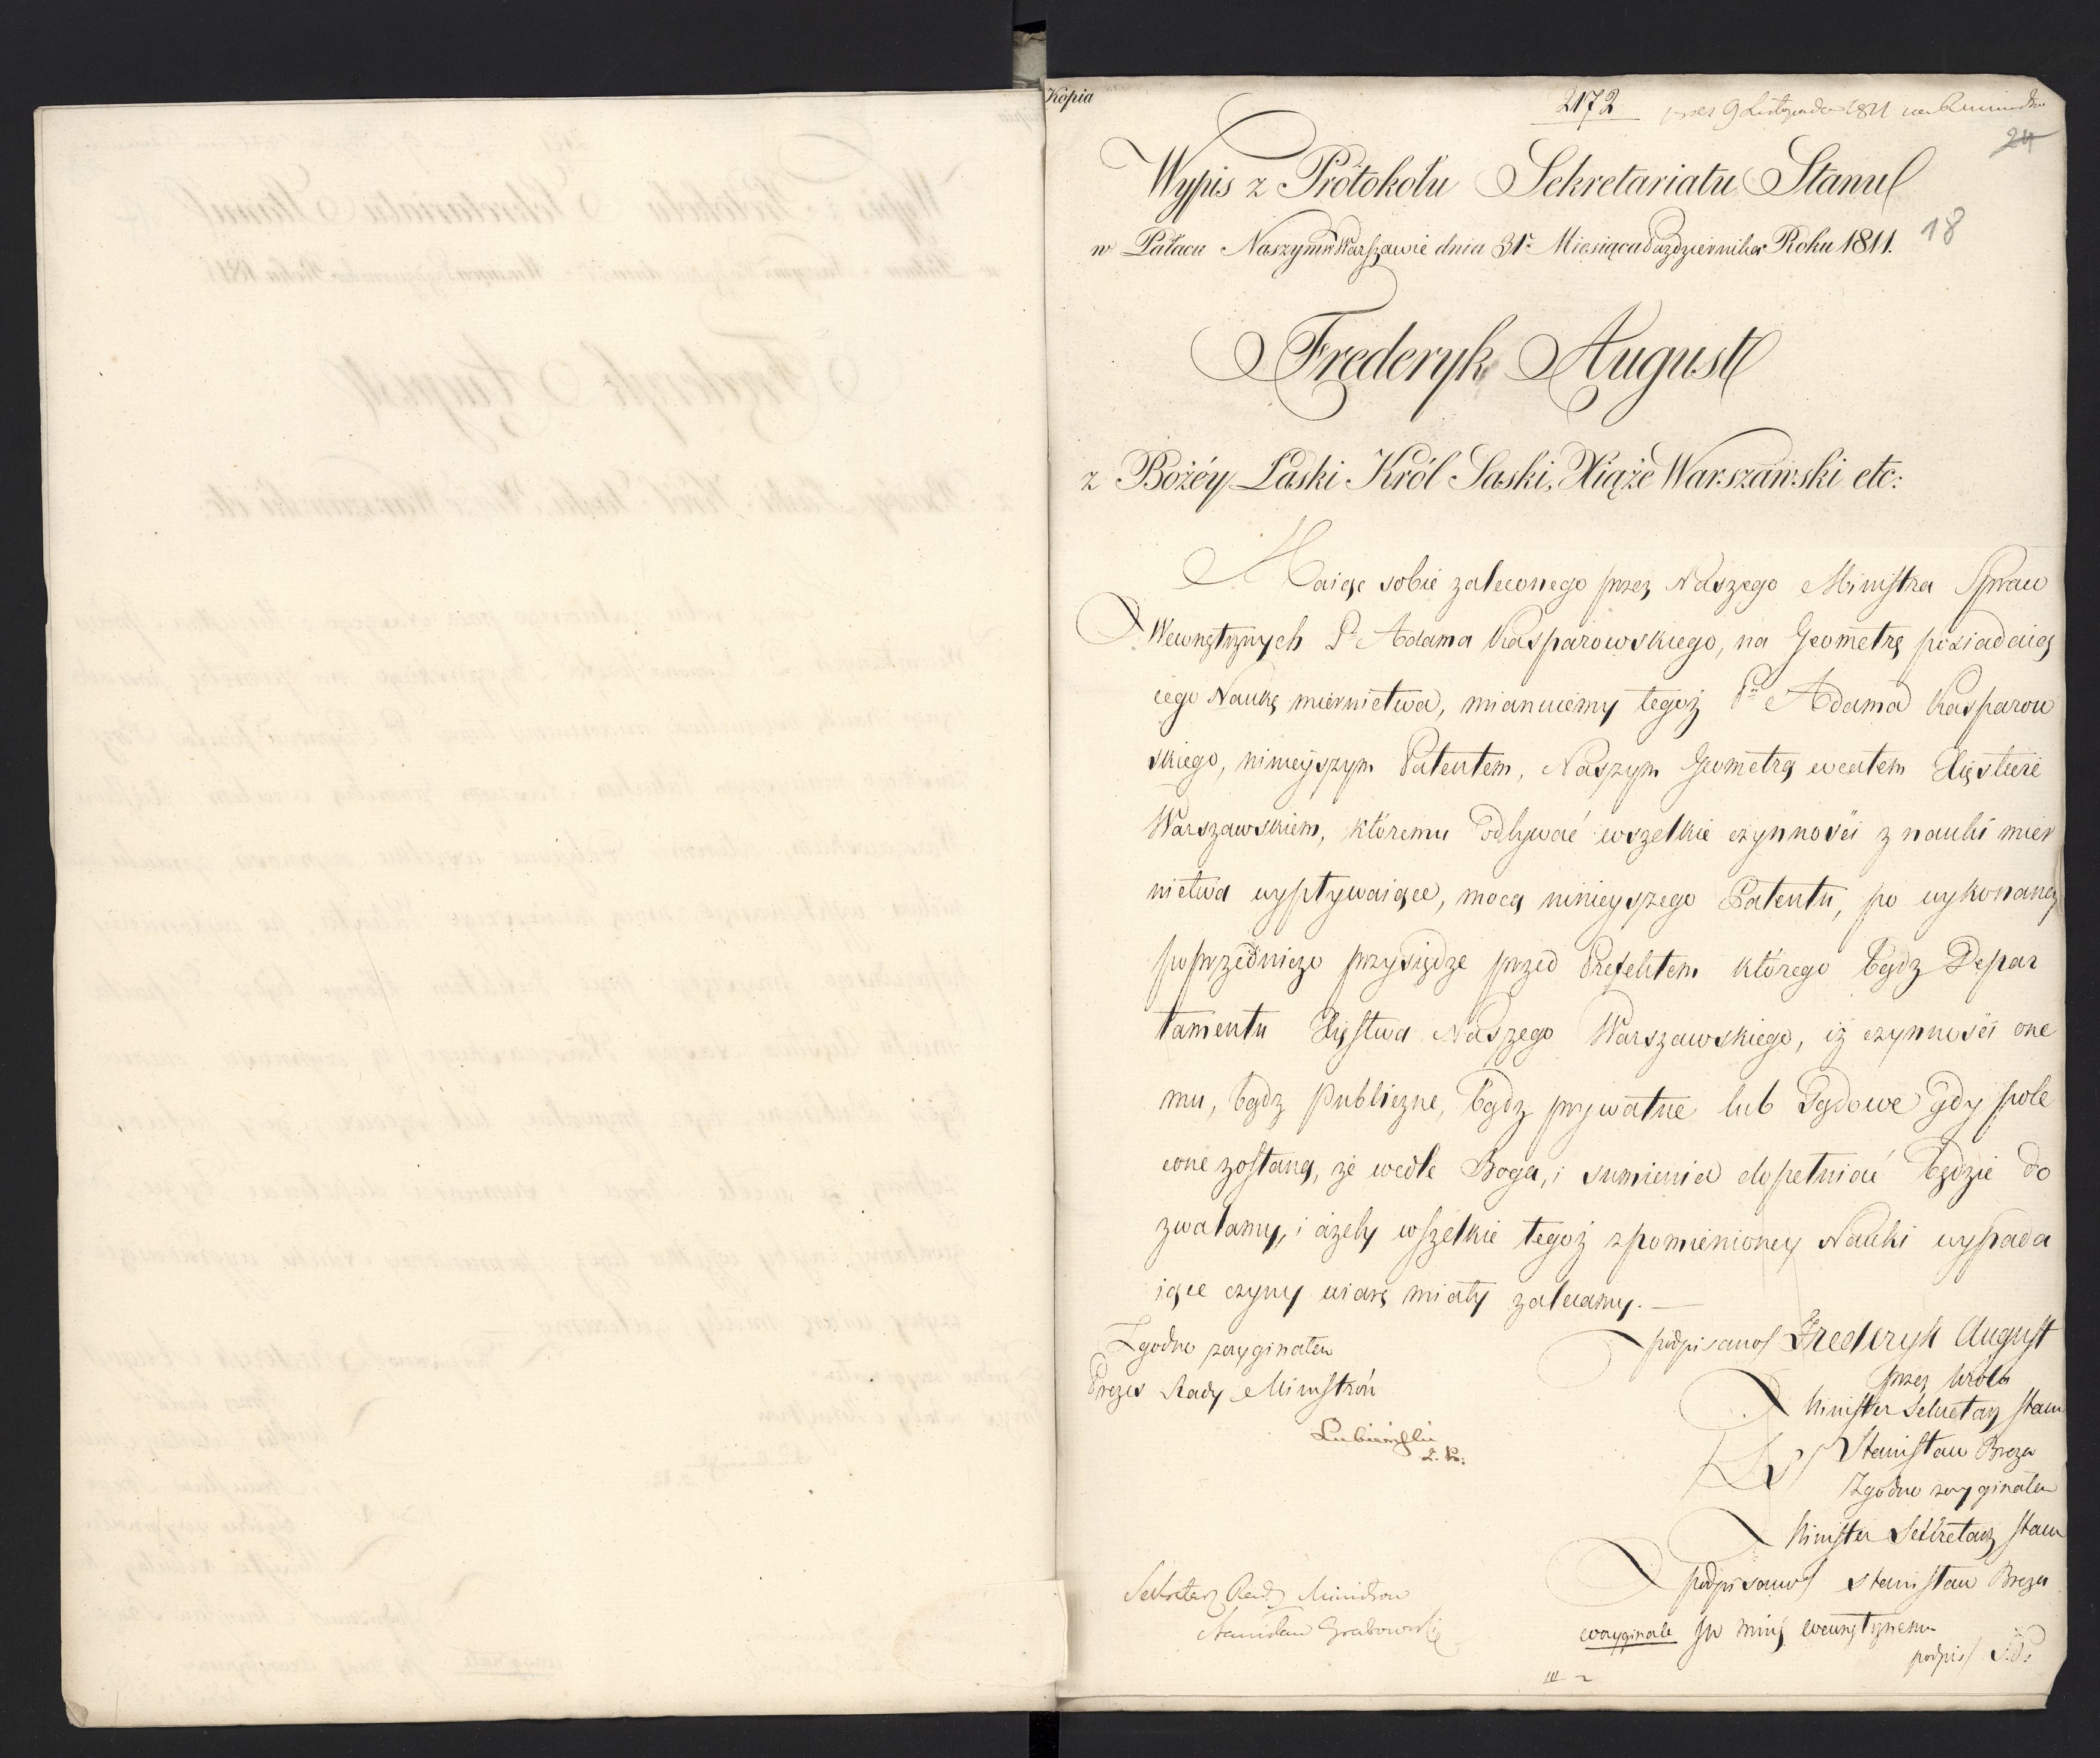 Kopia
2172
9 Listopada 1811
24
Wypis z Protokołu Sekretariatu Stanu
18
w Pałacu Naszym w Warszawie dnia 31º Miesiąca Października Roku 1811.
Frederyk August
z Bożéy Łaski Król Saski, Xiąże Warszawski etc:
Maiąc sobie zaleconego przez Naszego Ministra Spraw
Wewnętrznych P. Adama Kasparowskiego, na Geometrę posiadaią
cego Naukę miernictwa, mianuiemy tegoż Pa Adama Kasparow
skiego, ninieyszym Patentem, Naszym Geometrą w całem Xięstwie
Warszawskiem, któremu odbywać wszelkie czynności z nauki mier
nictwa wypływaiące, mocą ninieyszego Patentu, po wykonaney
poprzedniczo przysiędze przed Prefektem którego bądz Depar
tamentu Xięstwa Naszego Warszawskiego, iż czynności one
mu, bądz Publiczne, bądz prywatne lub Sądowe gdy pole
cone zostaną, że wedle Boga, i sumienia dopełniać będzie do
zwalamy, i ażeby wszelkie tegoż z pomienioney Nauki wypada
iące czyny wiarę miały zalecamy. —
Zgodno z oryginałem
podpisano/ Frederyk August
Prezes Rady Ministrów
przez Króla
Minister Sekretarz Stanu
Lubieński
L. S. / Stanisław Breza
Zgodno z oryginałem
Minister Sekretarz Stanu
podpisano/ Stanisław Breza
Sekretarz Rady Ministrów
Stanisław Grabowski
w oryginale
podpis/